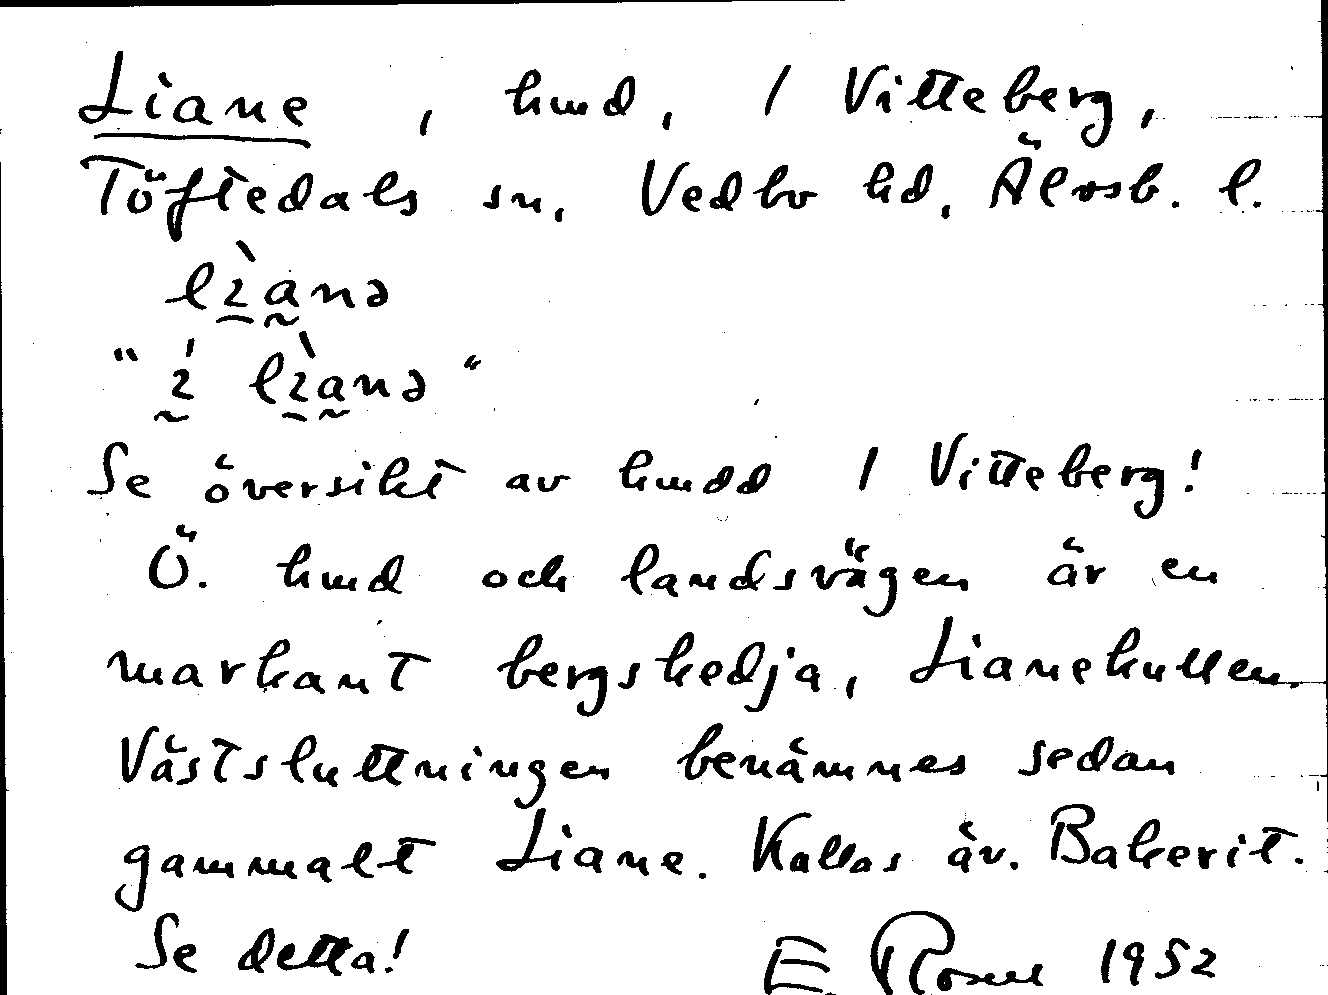 Liane, hmd, 1 Vitteberg,
Töftedals sn, Vedbo hd, Älvsb. l.
lìanə
"í lìanə"
Se översikt av hmdd 1 Vitteberg!
Ö. hmd och landsvägen är en
markant bergskedja, Lianekullen.
Västsluttningen benämnes sedan
gammalt Liane. Kallas äv. Bakerit.
Se detta! E. 1952